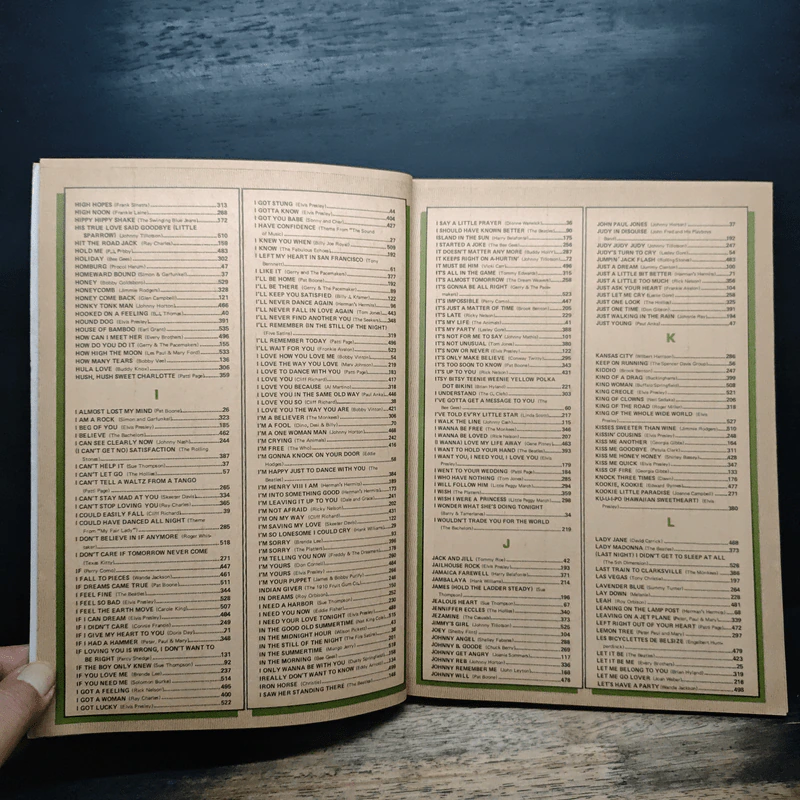 HIGH HOPES (Frank Sinatra) 313
HIGH NOON (Frankie Laine) 268
HIPPY HIPPY SHAKE (The Swinging Blue Jeans) 172
HIS TRUE LOVE SAID GOODBYE (LITTLE
SPARROW) (Johnny Tillotson) 510
HIT THE ROAD JACK (Ray Charles) 158
HOLD ME (P.J. Proby) 483
HOLIDAY (Bee Gees) 302
HOMBURG (Procol Harum) 47
HOMEWARD BOUND (Simon & Garfunkel) 37
HONEY (Bobby Goldsboro) 529
HONEYCOMB (Jimmie Rodgers) 328
HONEY COME BACK (Glen Campbell) 121
HONKY TONK MAN (Johnny Horton) 466
HOOKED ON A FEELING (B.J. Thomas) 40
HOUND DOG (Elvis Presley) 391
HOUSE OF BAMBOO (Earl Grant) 535
HOW CAN I MEET HER (Everly Brothers) 496
HOW DO YOU DO IT (Gerry & The Pacemakers) 155
HOW HIGH THE MOON (Les Paul & Mary Ford) 533
HOW MANY TEARS (Bobby Vee) 136
HULA LOVE (Buddy Knox) 306
HUSH, HUSH SWEET CHARLOTTE (Patti Page) 359
I
I ALMOST LOST MY MIND (Pat Boone) 26
I AM A ROCK (Simon and Garfunkel) 373
I BEG OF YOU (Elvis Presley) 185
I BELIEVE (The Bachelors) 462
I CAN SEE CLEARLY NOW (Johnny Nash) 244
(I CAN'T GET NO) SATISFACTION (The Rolling
Stones) 387
I CAN'T HELP IT (Sue Thompson) 37
I CAN'T LET GO (The Hollies) 57
I CAN'T TELL A WALTZ FROM A TANGO
(Patti Page) 265
I CAN'T STAY MAD AT YOU (Skeeter Davis) 334
I CAN'T STOP LOVING YOU (Ray Charles) 365
I COULD EASILY FALL (Cliff Richard) 39
I COULD HAVE DANCED ALL NIGHT (Theme
From "My Fair Lady") 285
I DON'T BELIEVE IN IF ANYMORE (Roger Whit-
taker) 518
I DON'T CARE IF TOMORROW NEVER COME
(Texas Kitty) 271
IF (Perry Como) 447
IF I FALL TO PIECES (Wanda Jackson) 461
IF DREAMS CAME TRUE (Pat Boone) 511
I FEEL FINE (The Beatles) 344
I FEEL SO BAD (Elvis Presley)
I FEEL THE EARTH MOVE (Carole King) 507
IF I CAN DREAM (Elvis Presley) 484
IF I DIDN'T CARE (Connie Francis) 249
IF I GIVE MY HEART TO YOU (Doris Day) 71
IF I HAD A HAMMER (Peter, Paul & Mary) 348
IF LOVING YOU IS WRONG, I DON'T WANT TO
BE RIGHT (Percy Sledge) 131
IF THE BOY ONLY KNEW (Sue Thompson) 92
IF YOU LOVE ME (Brenda Lee) 237
IF YOU NEED ME (Solomon Burke) 514
I GOT A FEELING (Rick Nelson) 495
I GOT A WOMAN (Ray Charles) 400
I GOT LUCKY (Elvis Presley) 522
I GOT STUNG (Elvis Presley) 44
I GOTTA KNOW (Elvis Presley)
I GOT YOU BABE (Sonny and Cher) 406
I HAVE CONFIDENCE (Theme From "The Sound
of Music") 427
I KNEW YOU WHEN (Billy Joe Royal) 27
I KNOW (The Fabulous Echoes) 509
I LEFT MY HEART IN SAN FRANCISCO (Tony
Bennett) 192
I LIKE IT (Gerry and The Pacemakers) 61
I'LL BE HOME (Pat Boone) 277
I'LL BE THERE (Gerry & The Pacemakers) 192
I'LL KEEP YOU SATISFIED (Billy J. Kramer) 122
I'LL NEVER DANCE AGAIN (Herman's Hermits) 96
I'LL NEVER FALL IN LOVE AGAIN (Tom Jones) 443
I'LL NEVER FIND ANOTHER YOU (The Seekers) 348
I'LL REMEMBER (IN THE STILL OF THE NIGHT)
(Elvis Satins) 319
I'LL REMEMBER TODAY (Patti Page) 496
I'LL WAIT FOR YOU (Frankie Avalon) 523
I LOVE HOW YOU LOVE ME (Bobby Vinton) 54
I LOVE THE WAY YOU LOVE (Marv Johnson) 219
I LOVE TO DANCE WITH YOU (Patti Page) 193
I LOVE YOU (Cliff Richard) 417
I LOVE YOU BECAUSE (Al Martino) 318
I LOVE YOU IN THE SAME OLD WAY (Paul Anka) 448
I LOVE YOU SO (Cliff Richard) 38
I LOVE YOU THE WAY YOU ARE (Bobby Vinton) 421
I'M A BELIEVER (The Monkees) 306
I'M A FOOL (Dino, Desi & Billy) 70
I'M A ONE WOMAN MAN (Johnny Horton) 468
I'M CRYING (The Animals) 242
I'M FREE (The Who) 416
I'M GONNA KNOCK ON YOUR DOOR (Eddie
Hodges) 58
I'M HAPPY JUST TO DANCE WITH YOU (The
Beatles) 380
I'M HENRY VIII I AM (Herman's Hermits) 159
I'M INTO SOMETHING GOOD (Herman's Hermits) 173
I'M LEAVING IT UP TO YOU (Dale and Grace) 241
I'M NOT AFRAID (Ricky Nelson) 202
I'M ON MY WAY (Cliff Richard) 501
I'M SAVING MY LOVE (Skeeter Davis) 122
I'M SO LONESOME I COULD CRY (Hank Williams) 39
I'M SORRY (Brenda Lee) 93
I'M SORRY (The Platters)
I'M TELLING YOU NOW (Freddy & The Dreamers) 380
I'M YOURS (Don Cornell) 164
I'M YOURS (Elvis Presley)
I'M YOUR PUPPET (James & Bobby Purify)
INDIAN GIVER (The 1910 Fruit Gum Co.) 450
IN DREAMS (Roy Orbison) 250
I NEED A HARBOR (Sue Thompson) 230
I NEED YOU NOW (Eddie Fisher) 469
I NEED YOUR LOVE TONIGHT (Elvis Presley) 489
IN THE GOOD OLD SUMMERTIME (Paul King Cole) 315
IN THE MIDNIGHT HOUR (Wilson Pickett) 43
IN THE STILL OF THE NIGHT (The Five Satins) 261
IN THE SUMMERTIME (Mungo Jerry)
IN THE MORNING (Bee Gees)
I ONLY WANNA BE WITH YOU (Dusty Springfield)
I REALLY DON'T WANT TO KNOW (Eddy Arnold)
IRON HORSE (Christie)
I SAW HER STANDING THERE (The Beatles)
I SAY A LITTLE PRAYER (Dionne Warwick) 38
I SHOULD HAVE KNOWN BETTER (The Beatles) 90
ISLAND IN THE SUN (Harry Belafonte) 175
I STARTED A JOKE (The Bee Gees) 256
IT DOESN'T MATTER ANY MORE (Buddy Holly) 287
IT KEEPS RIGHT ON A-HURTIN' (Johnny Tillotson) 72
IT MUST BE HIM (Vikki Carr) 496
IT'S ALL IN THE GAME (Tommy Edwards) 316
IT'S ALMOST TOMORROW (The Dream Weavers) 258
IT'S GONNA BE ALL RIGHT (Gerry & The Pace-
makers) 523
IT'S IMPOSSIBLE (Perry Como) 447
IT'S JUST A MATTER OF TIME (Brook Benton) 205
IT'S LATE (Ricky Nelson) 229
IT'S MY LIFE (The Animals) 41
IT'S MY PARTY (Lesley Gore)
IT'S NOT FOR ME TO SAY (Johnny Mathis) 101
IT'S NOT UNUSUAL (Tom Jones) 386
IT'S NOW OR NEVER (Elvis Presley) 122
IT'S ONLY MAKE BELIEVE (Conway Twitty) 295
IT'S TOO SOON TO KNOW (Pat Boone) 343
IT'S UP TO YOU (Rick Nelson) 431
ITSY BITSY TEENIE WEENIE YELLOW POLKA
DOT BIKINI (Brian Hyland) 221
I UNDERSTAND (The G. Clefs) 303
I'VE GOTTA GET A MESSAGE TO YOU (The
Bee Gees) 60
I'VE TOLD EV'RY LITTLE STAR (Linda Scott) 217
I WALK THE LINE (Johnny Cash) 115
I WANNA BE FREE (The Monkees) 306
I WANNA BE LOVED (Rick Nelson) 207
(I WANNA) LOVE MY LIFE AWAY (Gene Pitney) 483
I WANT TO HOLD YOUR HAND (The Beatles) 393
I WANT YOU, I NEED YOU, I LOVE YOU (Elvis
Presley) 179
I WENT TO YOUR WEDDING (Patti Page) 184
I WHO HAVE NOTHING (Tom Jones) 265
I WILL FOLLOW HIM (Little Peggy March) 294
I WISH (The Platters) 359
I WISH I WERE A PRINCESS (Little Peggy March) 298
I WONDER WHAT SHE'S DOING TONIGHT
(Barry & Tamerlane) 34
I WOULDN'T TRADE YOU FOR THE WORLD
(The Bachelors) 219
J
JACK AND JILL (Tommy Roe) 42
JAILHOUSE ROCK (Elvis Presley) 193
JAMAICA FAREWELL (Harry Belafonte) 371
JAMBALAYA (Hank Williams) 214
JAMES (HOLD THE LADDER STEADY) (Sue
Thompson) 196
JEALOUS HEART (Sue Thompson) 67
JENNIFER ECCLES (The Hollies) 340
JEZAMINE (The Casuals) 373
JIMMY'S GIRL (Johnny Tillotson) 526
JOEY (Betty Foo) 204
JOHNNY ANGEL (Shelley Fabares) 268
JOHNNY B. GOODE (Chuck Berry) 209
JOHNNY GET ANGRY (Joanie Summers) 117
JOHNNY REB (Johnny Horton) 336
JOHNNY REMEMBER ME (John Leyton) 168
JOHNNY WILL (Pat Boone) 478
JOHN PAUL JONES (Johnny Horton) 37
JUDY IN DISGUISE (John Fred and His Playboy
Band) 192
JUDY JUDY JUDY (Johnny Tillotson) 247
JUDY'S TURN TO CRY (Lesley Gore) 54
JUMPIN' JACK FLASH (Rolling Stones) 483
JUST A DREAM (Jimmy Clanton) 100
JUST A LITTLE BIT BETTER (Herman's Hermits) 171
JUST A LITTLE TOO MUCH (Rick Nelson) 356
JUST ASK YOUR HEART (Frankie Avalon) 304
JUST LET ME CRY (Lesley Gore) 256
JUST ONE LOOK (The Hollies) 235
JUST ONE TIME (Don Gibson) 391
JUST WALKING IN THE RAIN (Johnnie Ray) 194
JUST YOUNG (Paul Anka) 47
K
KANSAS CITY (Wilbert Harrison) 286
KEEP ON RUNNING (The Spencer Davis Group) 56
KIDDIO (Brook Benton) 247
KIND OF A DRAG (Buckinghams) 299
KING WOMAN (Buffalo Springfield) 508
KING CREOLE (Elvis Presley) 521
KING OF CLOWNS (Neil Sedaka) 206
KING OF THE ROAD (Roger Miller) 318
KING OF THE WHOLE WIDE WORLD (Elvis
Presley) 527
KISSES SWEETER THAN WINE (Jimmie Rodgers) 510
KISSIN' COUSINS (Elvis Presley) 248
KISS ME ANOTHER (Georgia Gibbs) 164
KISS ME GOODBYE (Petula Clark) 311
KISS ME HONEY HONEY (Shirley Bassey) 428
KISS ME QUICK (Elvis Presley) 347
KISS OF FIRE (Georgia Gibbs) 73
KNOCK THREE TIMES (Dawn) 176
KOOKIE, KOOKIE (Edward Byrnes) 477
KOOKIE LITTLE PARADISE (Joanne Campbell) 271
KU-U-I-PO (HAWAIIAN SWEETHEART) (Elvis
Presley) 380
L
LADY JANE (David Garrick) 488
LADY MADONNA (The Beatles) 373
(LAST NIGHT) I DIDN'T GET TO SLEEP AT ALL
(The 5th Dimension) 526
LAST TRAIN TO CLARKSVILLE (The Monkees) 366
LAS VEGAS (Tony Christie) 197
LAVENDER BLUE (Sammy Turner) 284
LAY DOWN (Melanie) 228
LEAH (Roy Orbison) 481
LEANING ON THE LAMP POST (Herman's Hermits) 68
LEAVING ON A JET PLANE (Peter, Paul & Mary) 339
LEFT RIGHT OUT OF YOUR HEART (Patti Page) 472
LEMON TREE (Peter Paul and Mary) 297
LES BICYCLETTES DE BELSIZE (Engelbert Hum-
perdinck) 479
LET IT BE (The Beatles) 423
LET IT BE ME (Everly Brothers) 25
LET ME BELONG TO YOU (Brian Hyland) 319
LET ME GO LOVER (Joan Weber) 216
LET'S HAVE A PARTY (Wanda Jackson) 498